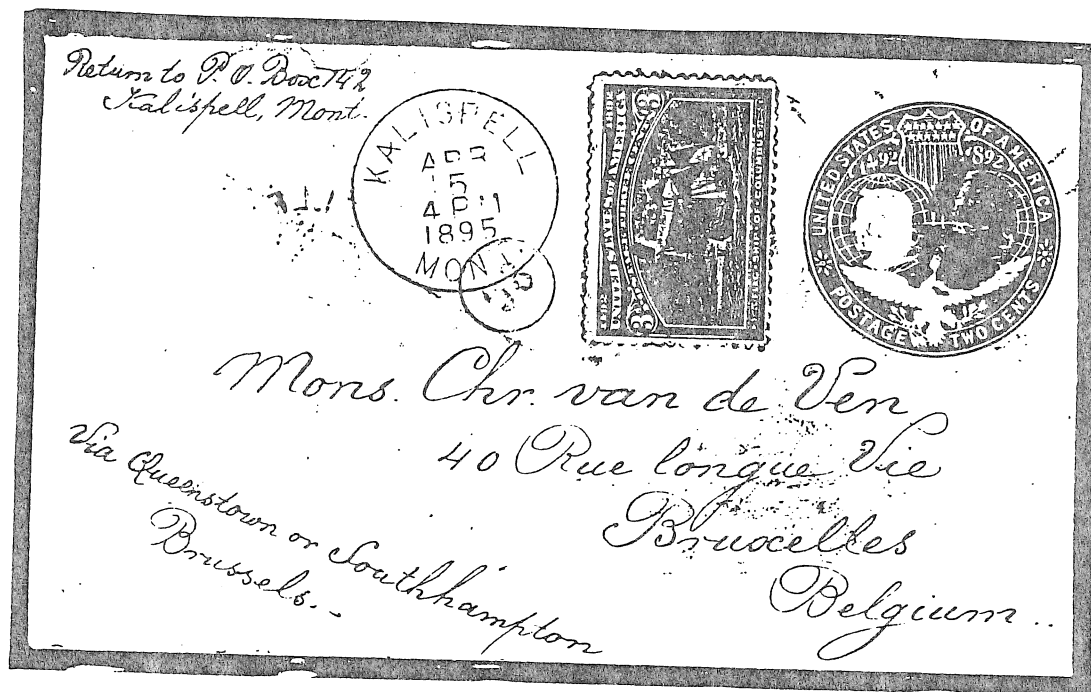 Return to P. O. Box 142
Kalispell, Mont.
KALISPELL
APR
15
4 PM
1895
MONT.
UNITED STATES OF AMERICA
3 3
UNITED STATES OF AMERICA
1492 1892
POSTAGE TWO CENTS
Mons. Chr. van de Ven
40 Rue longue Vie
Bruxelles
Belgium..
Via Queenstown or Southhampton
Brussels.-